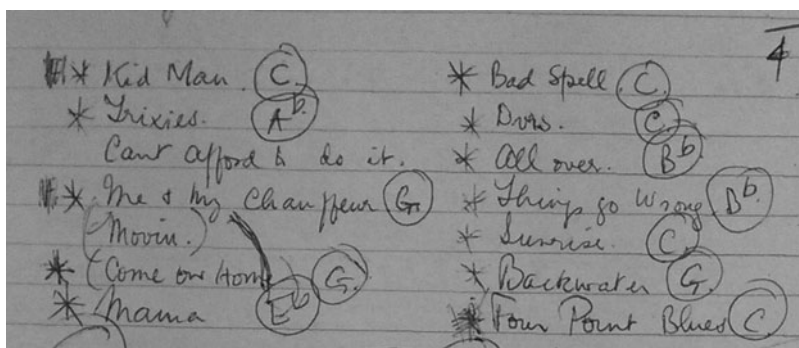 * Kid Man. C.
* Trixies. Ab.
Cant afford to do it.
* Me & My Chauffeur G.
(Movin.)
* (Come on Home G.
* Mama Eb
4
* Bad Spell. C.
* C.
* All over. Bb
* Things go Wrong. Bb.
* Sunrise. C.
* Backwater G.
* Four Point Blues C.